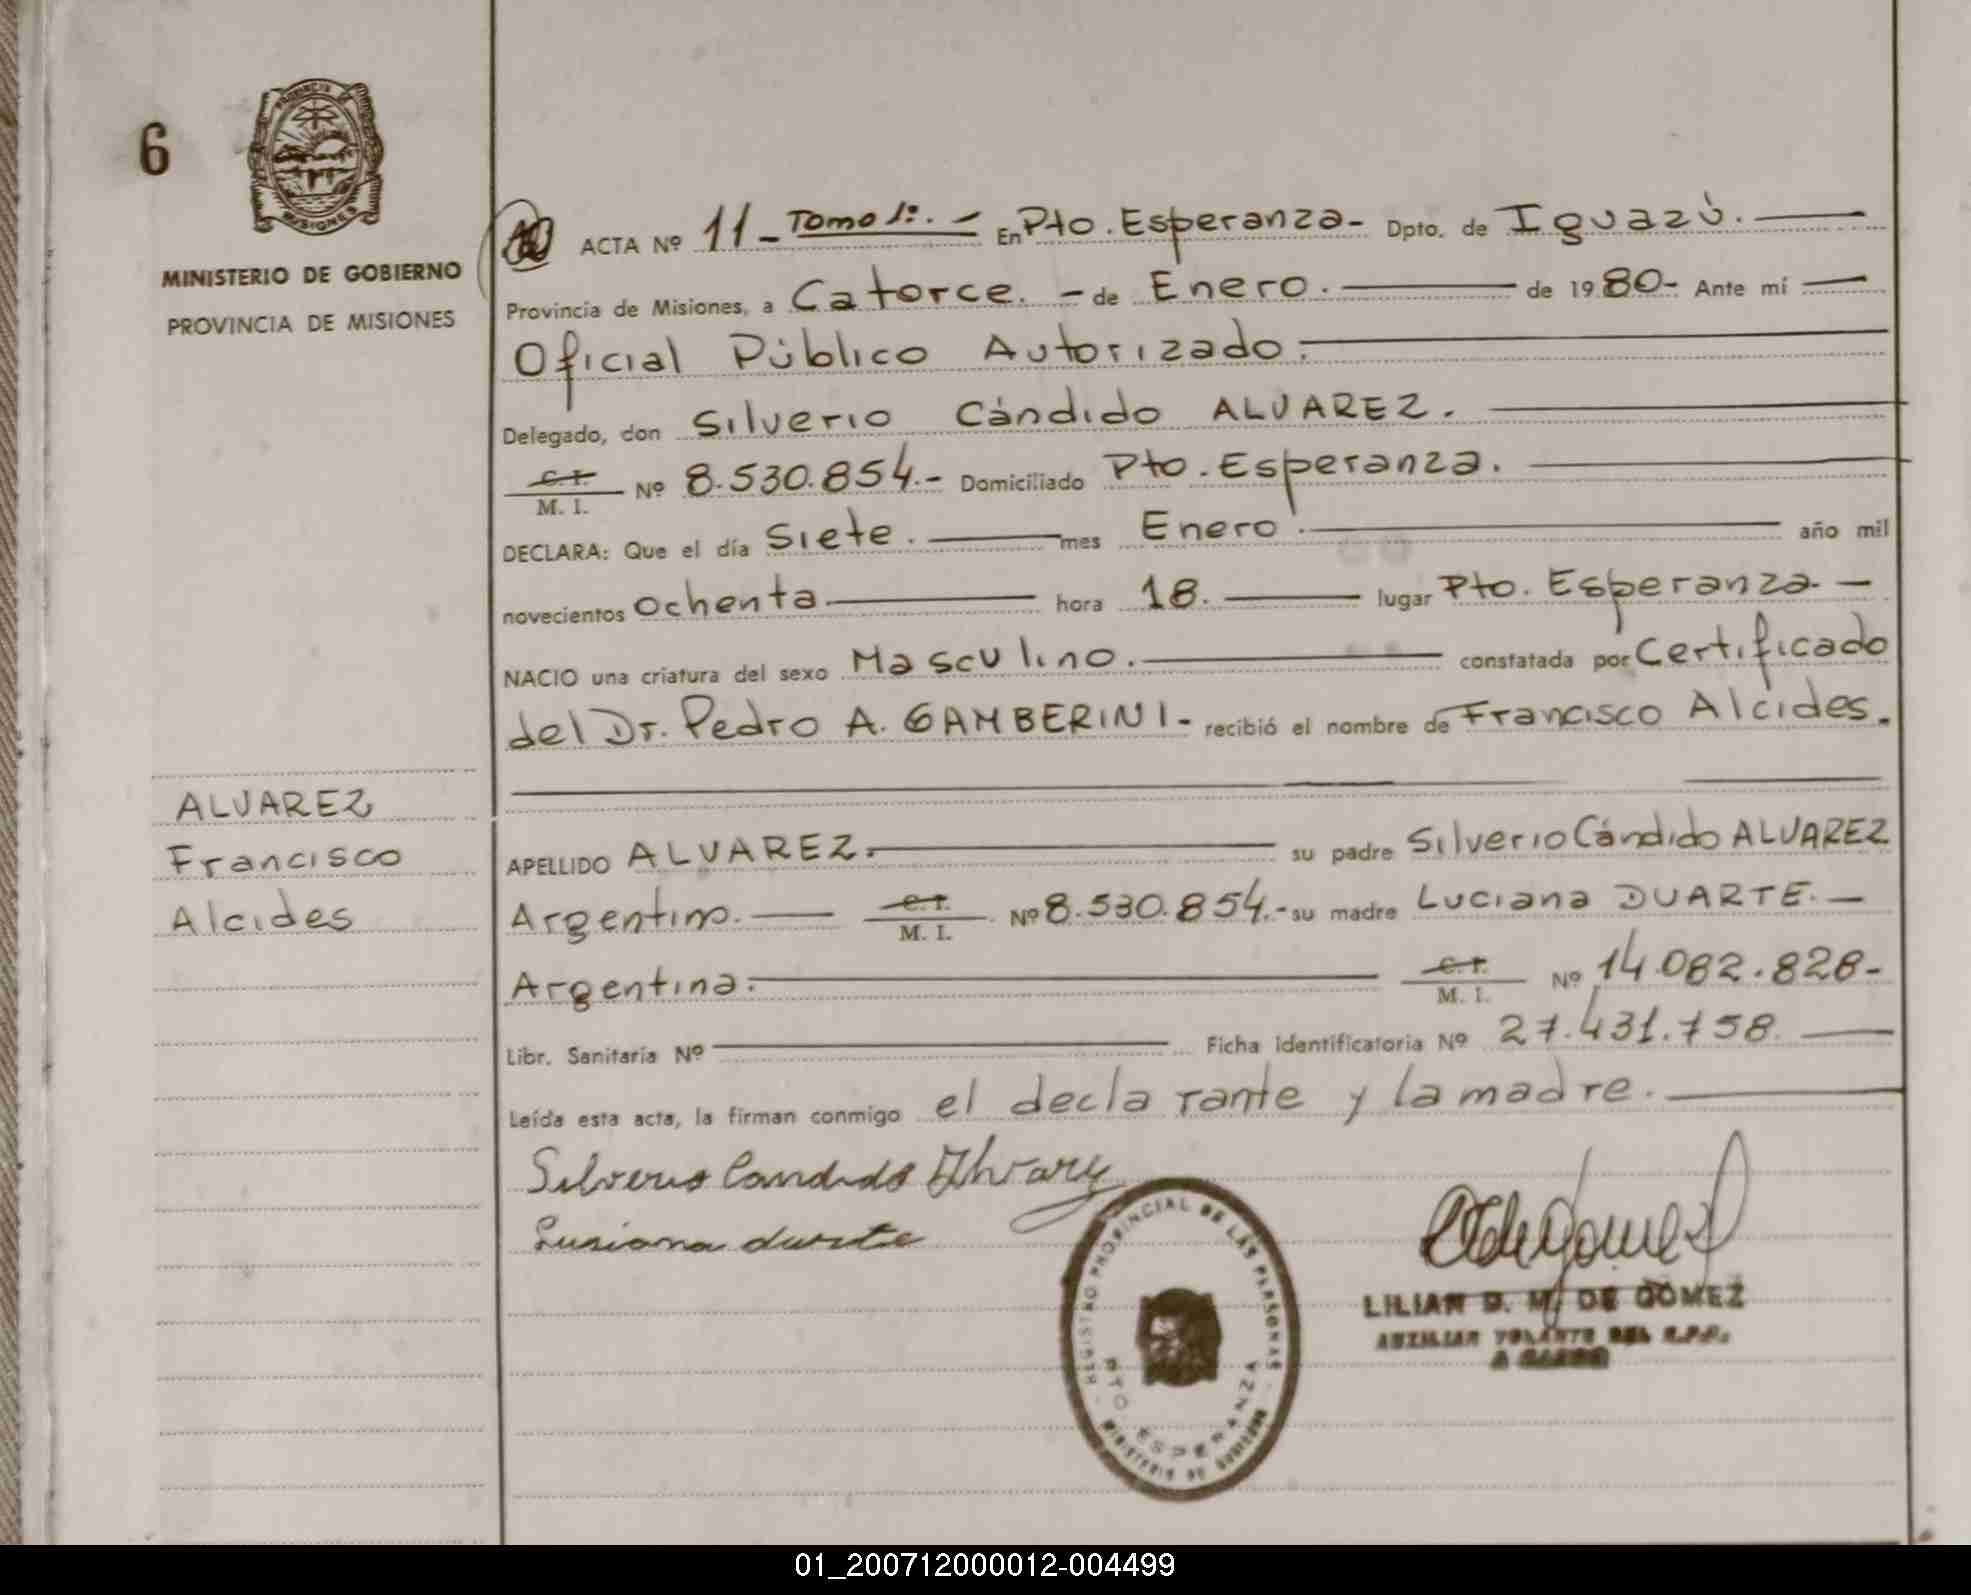 6
PROVINCIA DE
MISIONES
MINISTERIO DE GOBIERNO
PROVINCIA DE MISIONES
ACTA Nº 11 - Tomo 1º. - En Pto. Esperanza - Dpto. de Iguazú.
Provincia de Misiones, a Catorce. - de Enero. de 1980- Ante mí
Oficial Público Autorizado.
Delegado, don Silverio Cándido ALVAREZ.
C. I.
M. I. Nº 8.530.854.- Domiciliado Pto. Esperanza.
DECLARA: Que el día Siete. mes Enero. año mil
novecientos Ochenta hora 18. lugar Pto. Esperanza. -
NACIO una criatura del sexo Masculino. constatada por Certificado
del Dr. Pedro A. GAMBERINI- recibió el nombre de Francisco Alcides.
ALVAREZ
Francisco
Alcides
APELLIDO ALVAREZ. su padre Silverio Cándido ALVAREZ
Argentino. C. I.
M. I. Nº 8.530.854.- su madre Luciana DUARTE. -
Argentina. C. I.
M. I. Nº 14.082.828-
Libr. Sanitaria Nº Ficha Identificatoria Nº 27.431.758.
Leída esta acta, la firman conmigo el declarante y la madre.
Silverio Candido Alvarez
Lusiana duarte
REGISTRO PROVINCIAL DE LAS PERSONAS
PTO. ESPERANZA
MINISTERIO DE GOBIERNO
LILIAN D. M. DE GOMEZ
AUXILIAR VOLANTE DEL R.P.P.
A CARGO
01_200712000012-004499